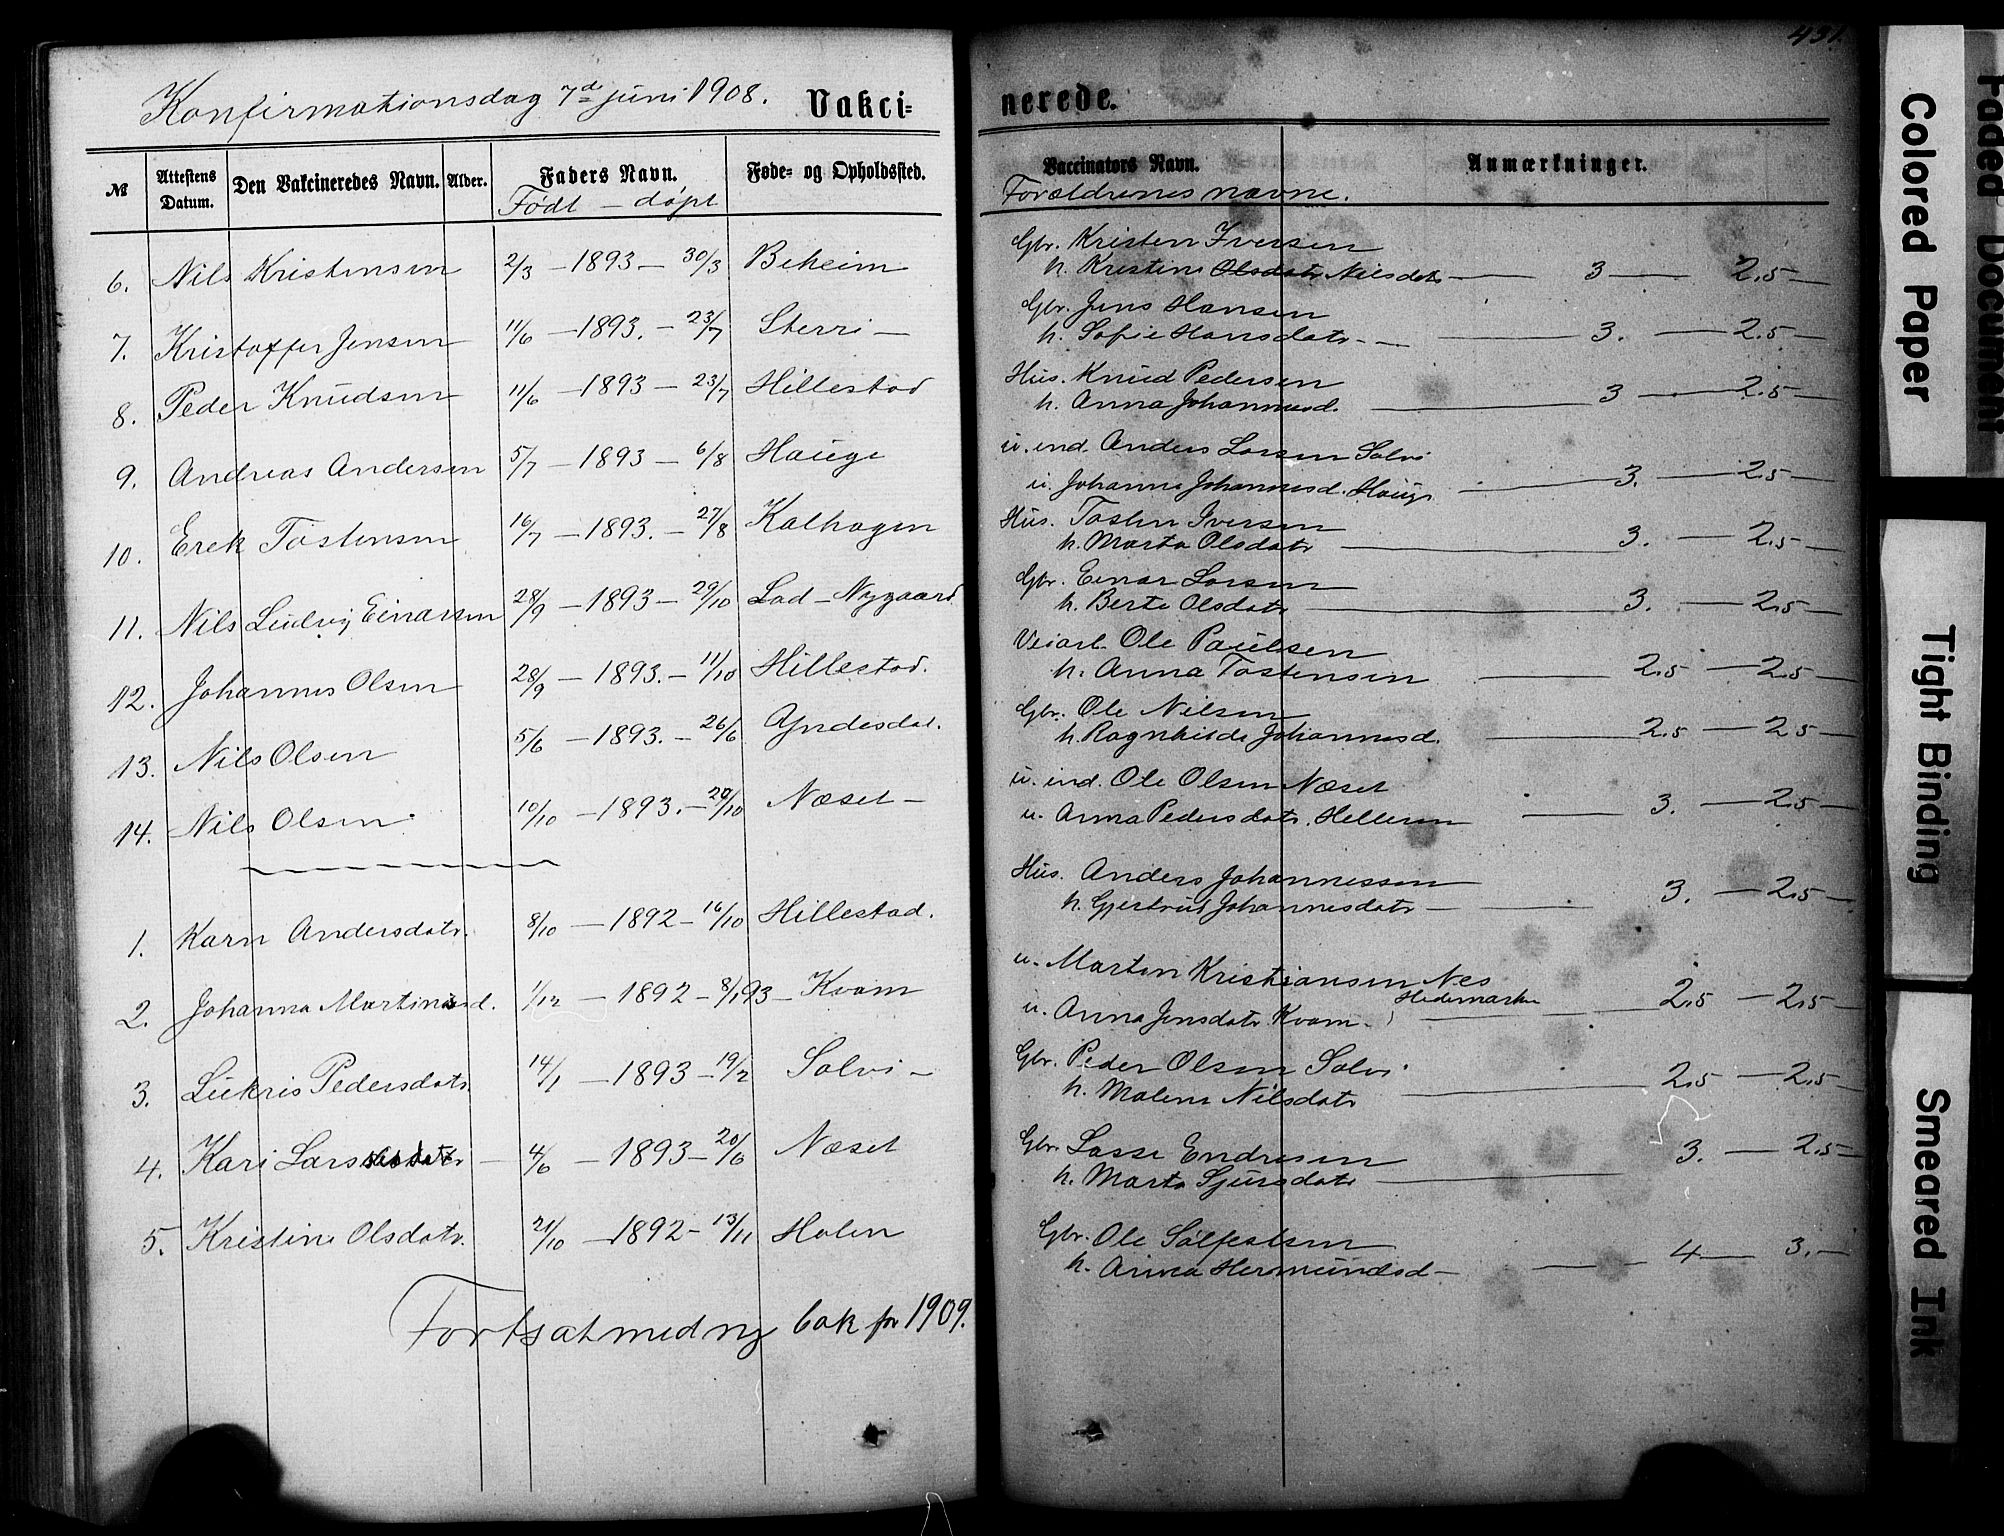 Konfirmationsdag 7de juni 1908. Vakci=
№ Attestens Datum. Den Vakcineredes Navn. Alder. Faders Navn. Føde- og Opholdssted.
Født - døpt
6. Nils Kristensen 2/3 - 1893 - 30/3 Beheim
7. Kristoffer Jensen 11/6 - 1893. - 23/7 Sterri -
8. Peder Knudsen 11/6 - 1893 - 23/7 Hillestad
9. Andreas Andersen 5/7 - 1893 - 6/8 Hauge
10. Erek Tostensen 16/7 - 1893. - 27/8 Kalhagen
11. Nils Ludvig Einarsen 28/9 - 1893 - 29/10 Lad - Nygaard
12. Johannes Olsen 28/9 - 1893. - 11/10 Hillestad.
13. Nils Olsen 5/6 - 1893. - 26/6 Yndesdal.
14. Nils Olsen 10/10 - 1893. - 29/10 Næset -
1. Karn Andersdatr. 8/10 - 1892 - 16/10 Hillestad.
2. Johanna Martinsd. 1/12 - 1892 - 8/1 93 - Kvam
3. Lukris Pedersdatr. 14/1 - 1893 - 19/2 Solvi -
4. Kari Larsdatr - 4/6 - 1893 - 20/6 Næset
5. Kristine Olsdatr. 21/10 - 1892 - 13/11 Holen
Fortsat med ny bok for 1909.
431.
nerede.
Vaccinators Navn. Anmærkninger.
Forældrenes navne.
Gbr. Kristen Iversen
h. Kristine Olsdatr Nilsdatr - 3 - 2.5 -
Gbr. Jens Hansen
h. Sofie Hansdatr - 3. - 2.5 -
Hus. Knud Pedersen
h. Anna Johannesd. - 3 - 2.5 -
u. ind. Anders Larsen Solvi
u. Johanna Johannesd. Hauge - 3. - 2.5 -
Hus. Tosten Iversen
h. Marta Olsdatr - 3. - 2.5 -
Gbr. Einar Larsen
h. Berte Olsdatr - 3. - 2.5 -
Veiarb. Ole Paulsen
h. Anna Tostensen - 2.5 - 2.5 -
Gbr. Ole Nilsen
h. Ragnhilde Johannesd. - 2.5 - 2.5 -
u. ind. Ole Olsen Næset
u. Anna Pedersdatr. Helleren - 3. - 2.5 -
Hus. Anders Johannessen
h. Gjertrud Johannesdatr - 3. - 2.5 -
u. Martin Kristiansen Nes
Hedemarken
u. Anna Jensdatr Kvam. - 2.5 - 2.5 -
Gbr. Peder Olsen Solvi
h. Malene Nilsdatr - 2.5 - 2.5 -
Gbr. Lasse Endresen
h. Marta Sjursdatr - 3. - 2.5 -
Gbr. Ole Sølfestsen
h. Anna Hermundsd - 4 - 3. -
Faded Document
Colored Paper
Tight Binding
Smeared Ink